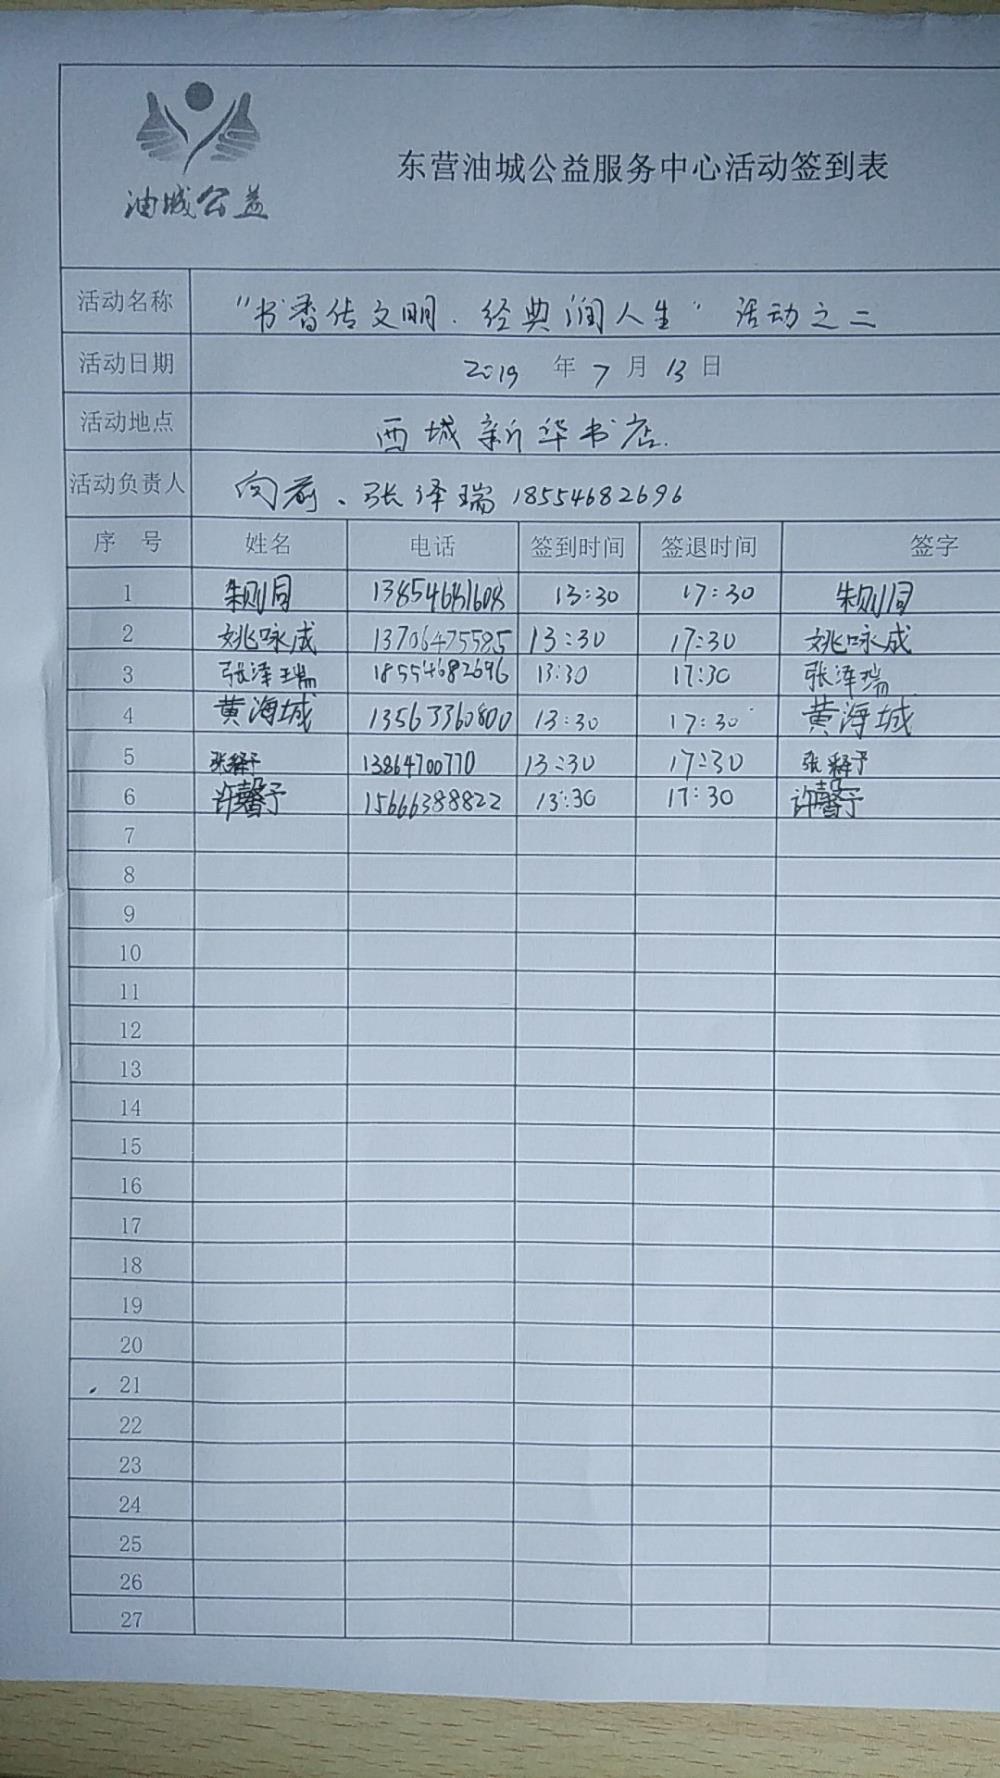 油城公益
东营油城公益服务中心活动签到表
活动名称 "书香传文明.经典润人生"活动之二
活动日期 2019 年 7 月 13 日
活动地点 西城新华书店.
活动负责人 向前、张泽瑞 18554682696
序 号 姓名 电话 签到时间 签退时间 签字
1 朱则同 13854681608 13:30 17:30 朱则同
2 姚咏成 13706475585 13:30 17:30 姚咏成
3 张泽瑞 18554682696 13:30 17:30 张泽瑞
4 黄海城 13563360800 13:30 17:30 黄海城
5 张释予 13864700770 13:30 17:30 张释予
6 许馨予 15666388822 13:30 17:30 许馨予
7
8
9
10
11
12
13
14
15
16
17
18
19
20
21
22
23
24
25
26
27